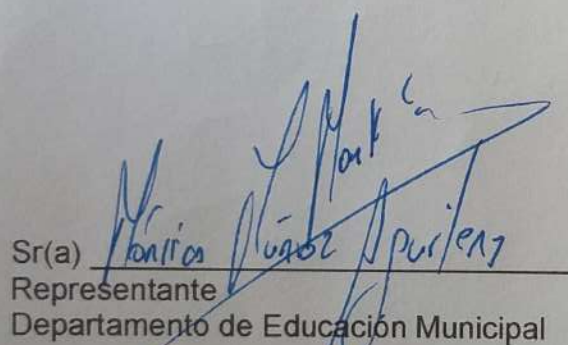 Sr(a) Mónica Muñoz
Representante
Departamento de Educación Municipal